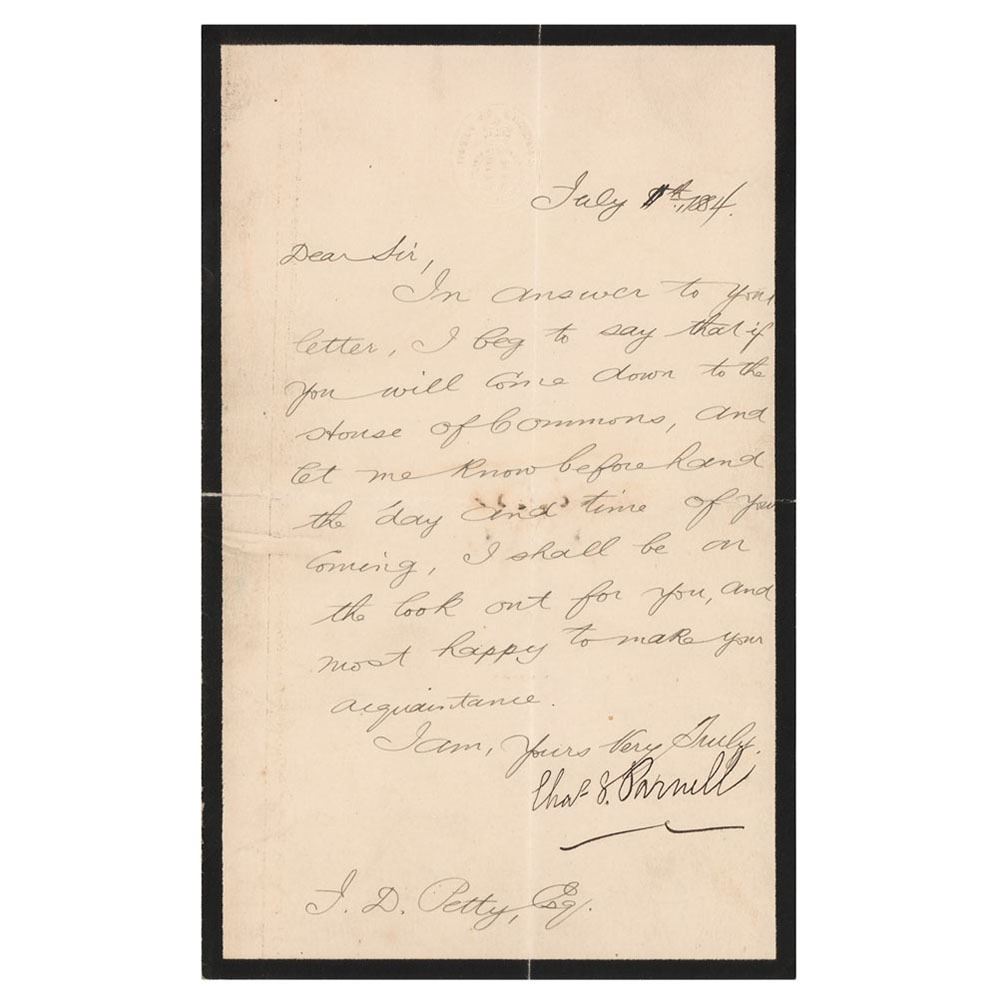 July 1th, 1884.
Dear Sir,
In answer to your
letter, I beg to say that if
you will come down to the
House of Commons, and
let me know before hand
the day and time of your
coming, I shall be on
the look out for you, and
most happy to make your
acquaintance.
I am, Yours Very Truly.
Chas S. Parnell
J. D. Petty, Esq.